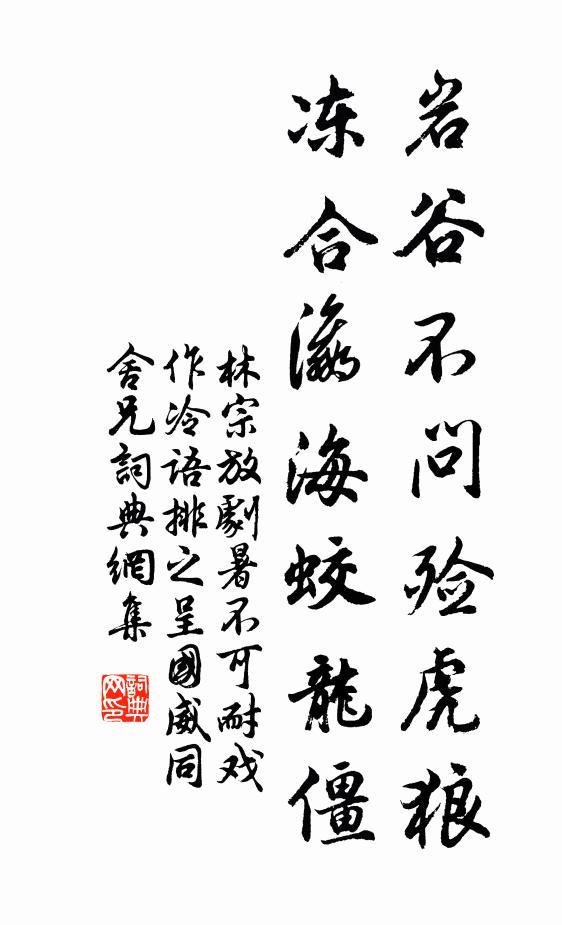 岩谷不问殓虎狼
冻合瀛海蛟龍僵
林宗放劇暑不可耐戏
作冷語排之呈國威同
舍兄詞典網集
詞典网印